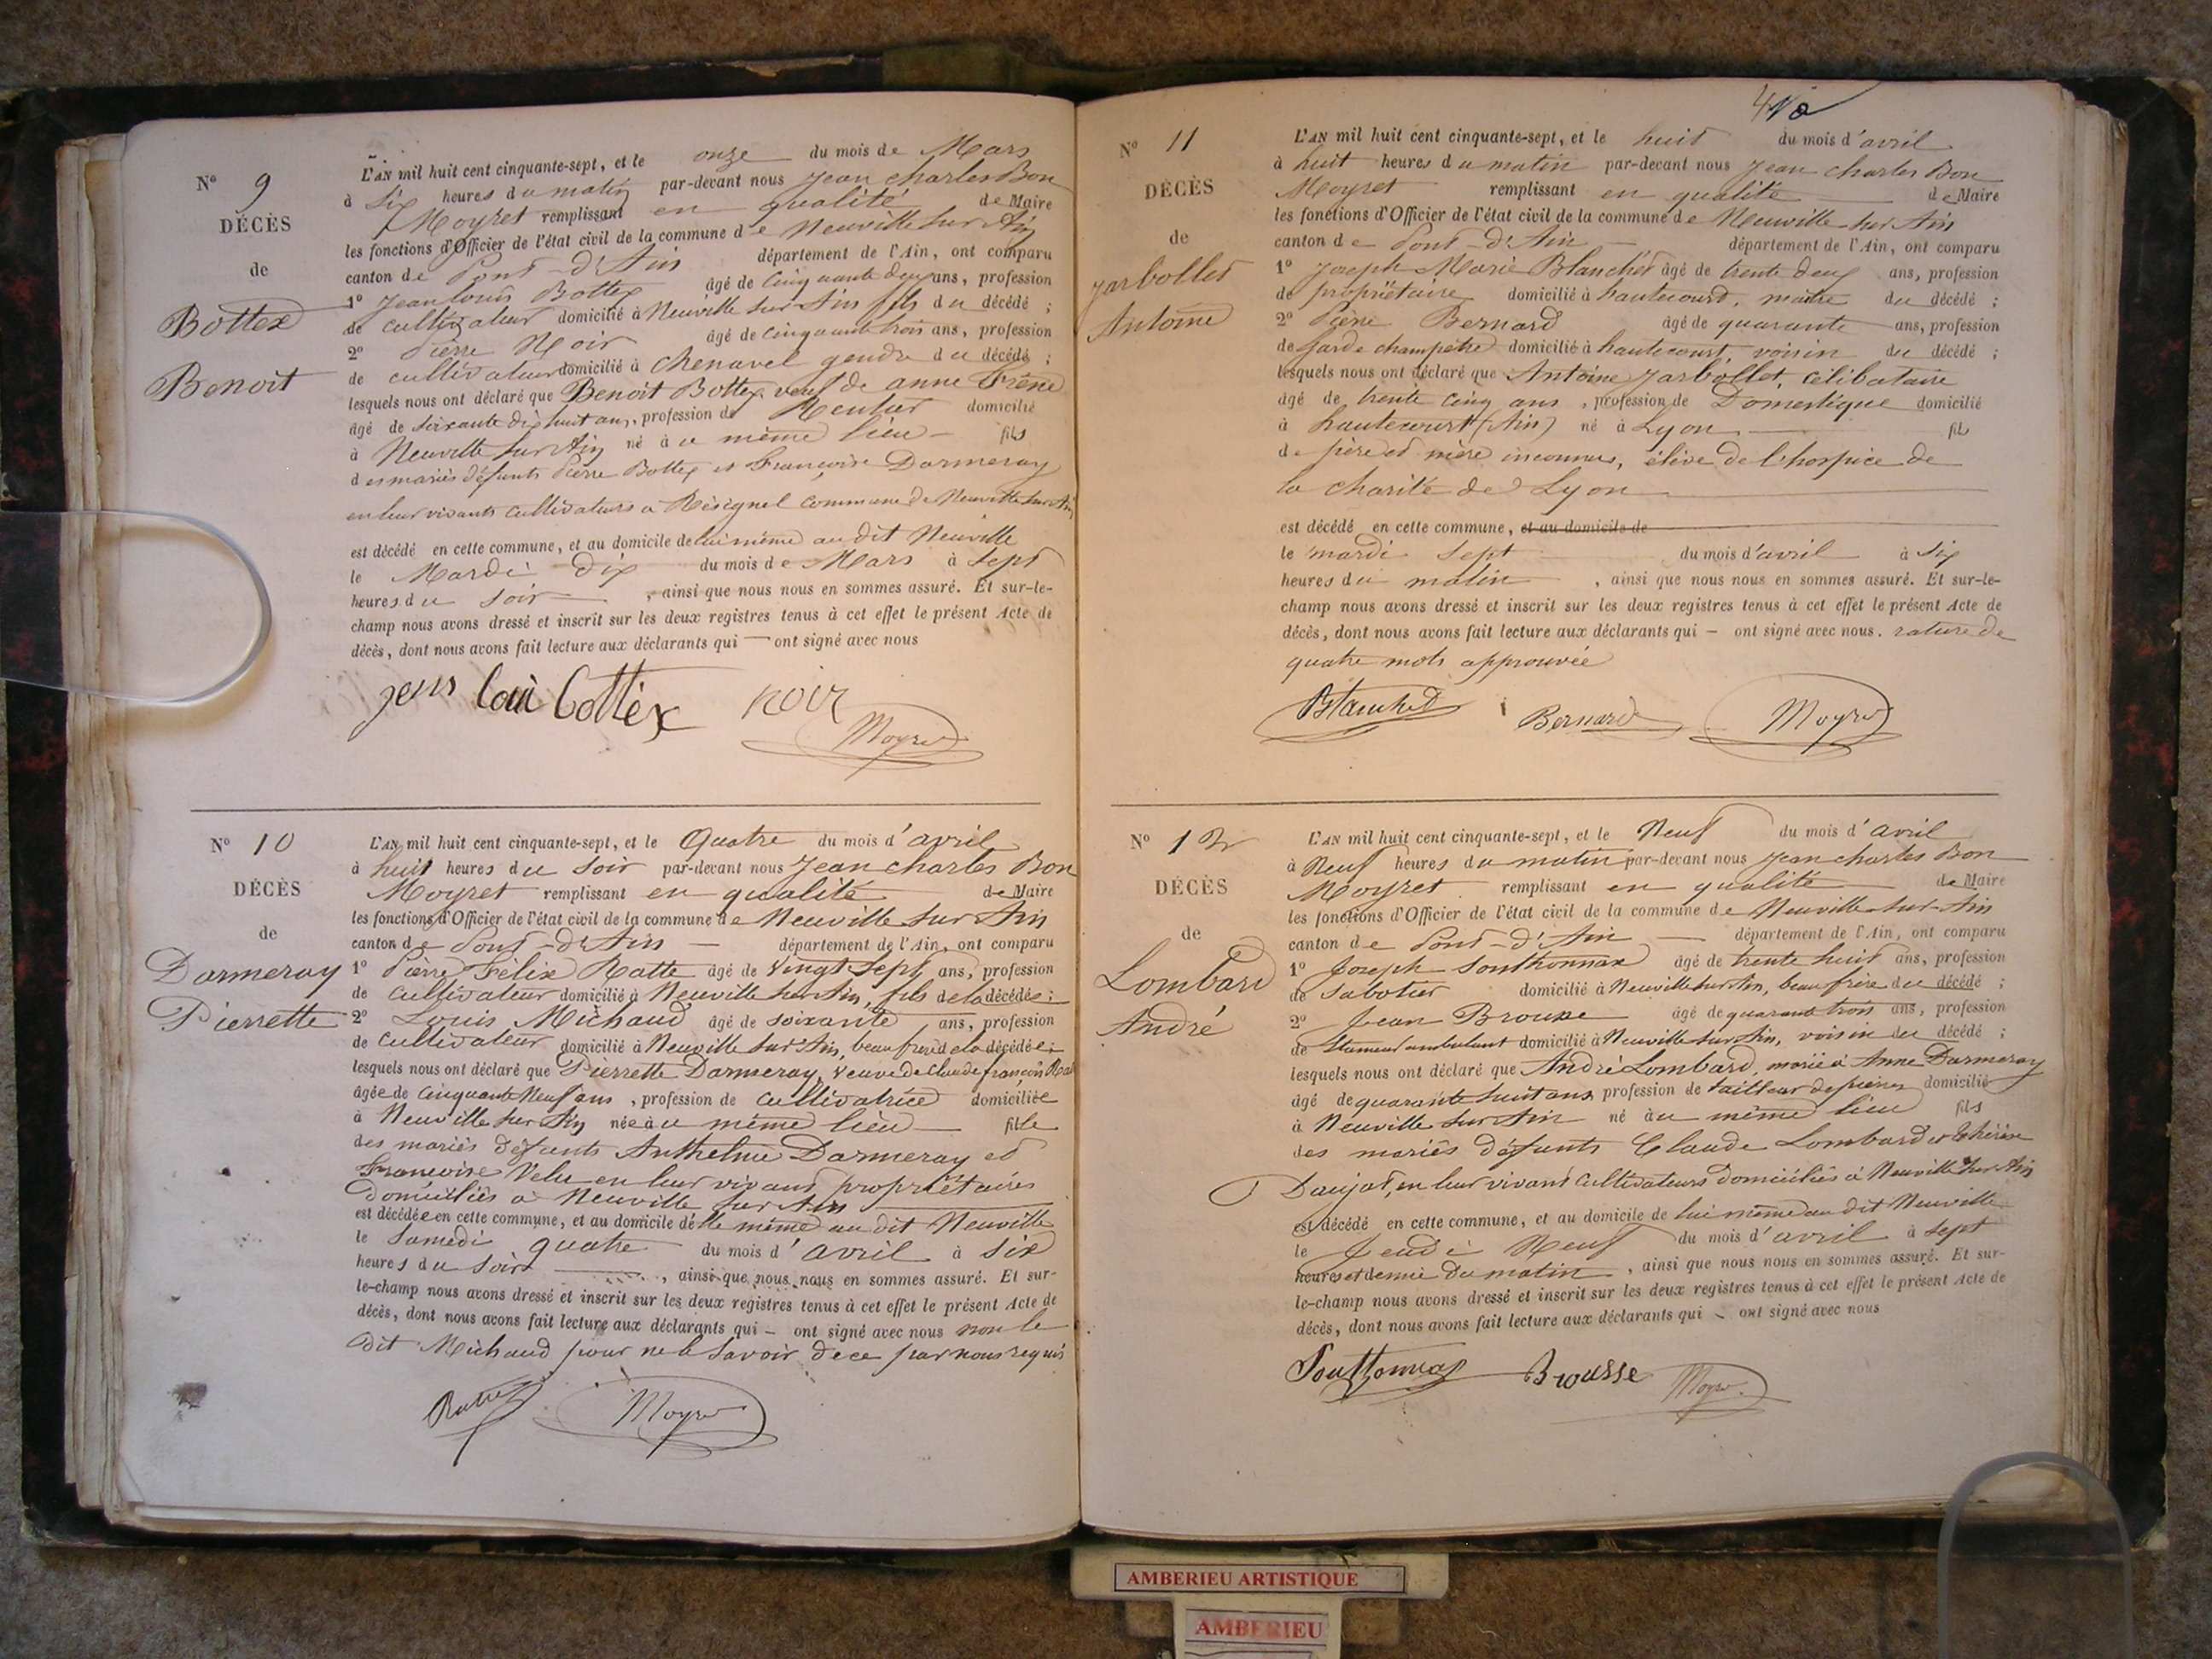 Nº 9
DÉCÈS
de
Bottex
Benoit
L'AN mil huit cent cinquante-sept, et le onze du mois de Mars
à six heures du matin par-devant nous Jean Charles Bon
Moyret remplissant en qualité de Maire
les fonctions d'Officier de l'état civil de la commune de Neuville sur Ain
canton de Pont-d'Ain département de l'Ain, ont comparu
1º Jean Louis Bottex âgé de Cinquante deux ans, profession
de cultivateur domicilié à Neuville sur Ain fils du décédé ;
2º Pierre Noir âgé de cinquante trois ans, profession
de cultivateur domicilié à Chenavel gendre du décédé ;
lesquels nous ont déclaré que Benoit Bottex veuf de anne
âgé de soixante dix huit ans, profession de Rentier domicilié
à Neuville sur Ain né à u même lieu fils
des mariés défunts Pierre Bottex et Françoise Darmeray
en leur vivants cultivateurs à Résignel commune de Neuville sur Ain
est décédé en cette commune, et au domicile de lui même au dit Neuville
le Mardi Dix du mois de Mars à sept
heures du soir , ainsi que nous nous en sommes assuré. Et sur-le-
champ nous avons dressé et inscrit sur les deux registres tenus à cet effet le présent Acte de
décès, dont nous avons fait lecture aux déclarants qui — ont signé avec nous
jean Loui Bottex noir
Moyret
Nº 10
DÉCÈS
de
Darmeray
Pierrette
L'AN mil huit cent cinquante-sept, et le Quatre du mois d'avril
à huit heures du soir par-devant nous Jean Charles Bon
Moyret remplissant en qualité de Maire
les fonctions d'Officier de l'état civil de la commune de Neuville sur Ain
canton de Pont-d'Ain — département de l'Ain, ont comparu
1º Pierre Félix Ratte âgé de vingt sept ans, profession
de cultivateur domicilié à Neuville sur Ain, fils de la décédée ;
2º Louis Michaud âgé de soixante ans, profession
de cultivateur domicilié à Neuville sur Ain, beau frère de la décédée ;
lesquels nous ont déclaré que Pierrette Darmeray, veuve de Claude françois
âgée de cinquante neuf ans, profession de cultivatrice domiciliée
à Neuville sur Ain née à u même lieu — fille
des mariés défunts Anthelme Darmeray et
Françoise Velu en leur vivant propriétaires
domiciliés à Neuville sur Ain
est décédée en cette commune, et au domicile d'elle même au dit Neuville
le Samedi quatre du mois d'avril à six
heures du soir , ainsi que nous nous en sommes assuré. Et sur-
le-champ nous avons dressé et inscrit sur les deux registres tenus à cet effet le présent Acte de
décès, dont nous avons fait lecture aux déclarants qui — ont signé avec nous non le
dit Michaud pour ne le savoir de ce par nous requis
Ratte Moyret
4
Nº 11
DÉCÈS
de
Jarbollet
Antoine
L'AN mil huit cent cinquante-sept, et le huit du mois d'avril
à huit heures du matin par-devant nous Jean Charles Bon
Moyret remplissant en qualité de Maire
les fonctions d'Officier de l'état civil de la commune de Neuville sur Ain
canton de Pont-d'Ain — département de l'Ain, ont comparu
1º Joseph Marie Blanchet âgé de trente deux ans, profession
de propriétaire domicilié à hautecourt, maître du décédé ;
2º Pierre Bernard âgé de quarante ans, profession
de garde champêtre domicilié à hautecourt, voisin du décédé ;
lesquels nous ont déclaré que Antoine Jarbollet, célibataire
âgé de trente cinq ans, profession de Domestique domicilié
à hautecourt (Ain) né à Lyon fils
de père et mère inconnus, élève de l'hospice de
la charité de Lyon
est décédé en cette commune, et au domicile de
le mardi sept du mois d'avril à six
heures du matin , ainsi que nous nous en sommes assuré. Et sur-le-
champ nous avons dressé et inscrit sur les deux registres tenus à cet effet le présent Acte de
décès, dont nous avons fait lecture aux déclarants qui — ont signé avec nous. rature de
quatre mots approuvée
Blanchet Bernard Moyret
Nº 12
DÉCÈS
de
Lombard
André
L'AN mil huit cent cinquante-sept, et le Neuf du mois d'avril
à Neuf heures du matin par-devant nous Jean Charles Bon
Moyret remplissant en qualité de Maire
les fonctions d'Officier de l'état civil de la commune de Neuville sur Ain
canton de Pont-d'Ain — département de l'Ain, ont comparu
1º Joseph Southonnax âgé de trente huit ans, profession
de sabotier domicilié à Neuville sur Ain, beau frère du décédé ;
2º Jean Brousse âgé de quarante trois ans, profession
de étameur ambulant domicilié à Neuville sur Ain, voisin du décédé ;
lesquels nous ont déclaré que André Lombard, marié à Anne Darmeray
âgé de quarante huit ans profession de tailleur de pierres domicilié
à Neuville sur Ain né à u même lieu fils
des mariés défunts Claude Lombard et Thérèse
Daujat, en leur vivant cultivateurs domiciliés à Neuville sur Ain
est décédé en cette commune, et au domicile de lui même au dit Neuville
le Jeudi Neuf du mois d'avril à sept
heures et demie du matin , ainsi que nous nous en sommes assuré. Et sur-
le-champ nous avons dressé et inscrit sur les deux registres tenus à cet effet le présent Acte de
décès, dont nous avons fait lecture aux déclarants qui — ont signé avec nous
Southonnax Brousse Moyret
AMBERIEU ARTISTIQUE
AMBERIEU